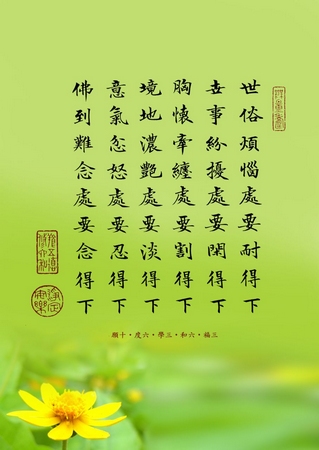 世俗煩惱處要耐得下
世事紛擾處要閑得下
胸懷牽纏處要割得下
境地濃艷處要淡得下
意氣忿怒處要忍得下
佛到難念處要念得下
三福・六和・三學・六度・十願